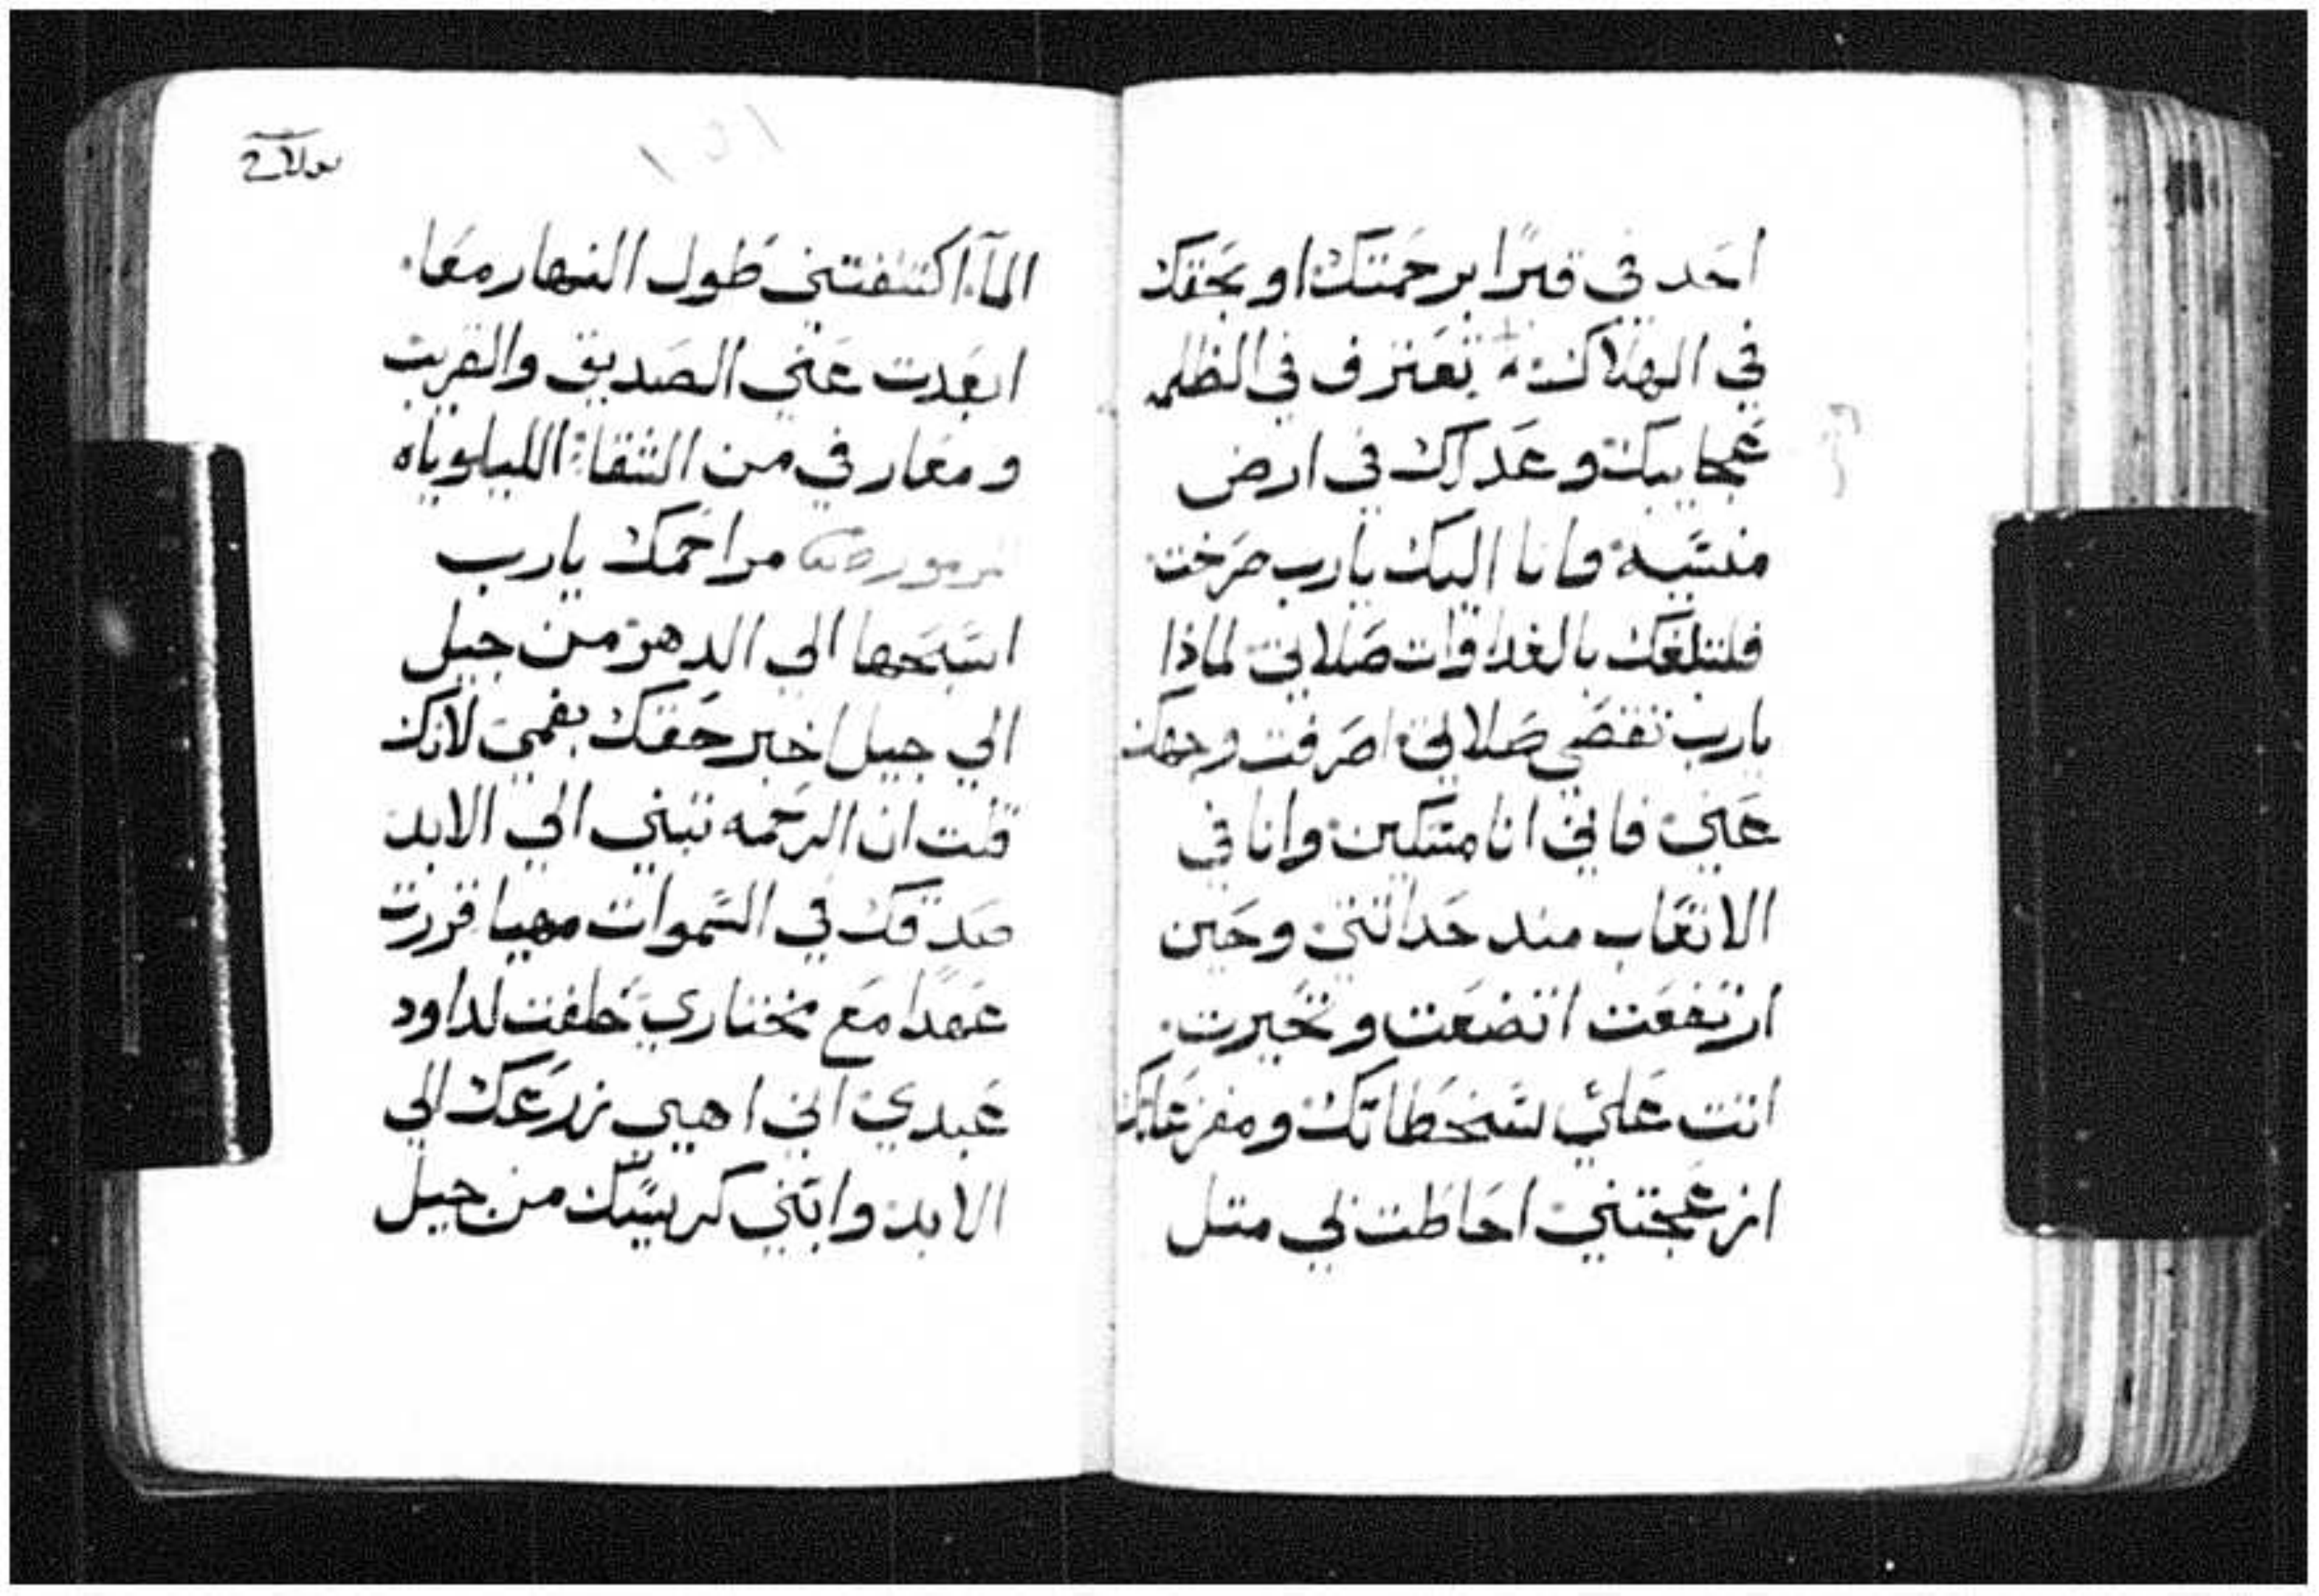 احد في قبرًا برحمتك او بحقك
في الهلاك تعترف في الظلمه
عجايبك وعدلك في ارض
منسّيه وانا اليك يارب صرخت
فلتبلغك بالغدا وات صَلاتي لماذا
يارب تقصَي صَلاتي اصرفت وجهك
عَني فاني انا مسَكين وانا في
الاتعَاب مند حَداثتي وحَين
ارتفعَت اتضعَت وتحَيرت
انت عَليّ سَخطاتك ومفزعَاتك
ازعَجتني احَاطت بي متل
المآ اكتنفتني طول النهار معَا
ابعَدت عَني الصَديق والقريب
ومعَارفي من الشقا الليلوياه
مراحَمك يارب
اسَبحَها الي الدهر من جيل
الي جيل اخبر حَقك بفمي لانك
قلت ان الرحَمه تبني الي الابد
صَدقك في السَموات مهيا قررت
عَهدًا مَع مختاري حَلفت لداود
عَبدي اني اهيي زرعَك الي
الابد وابني كرسيّك من جيل